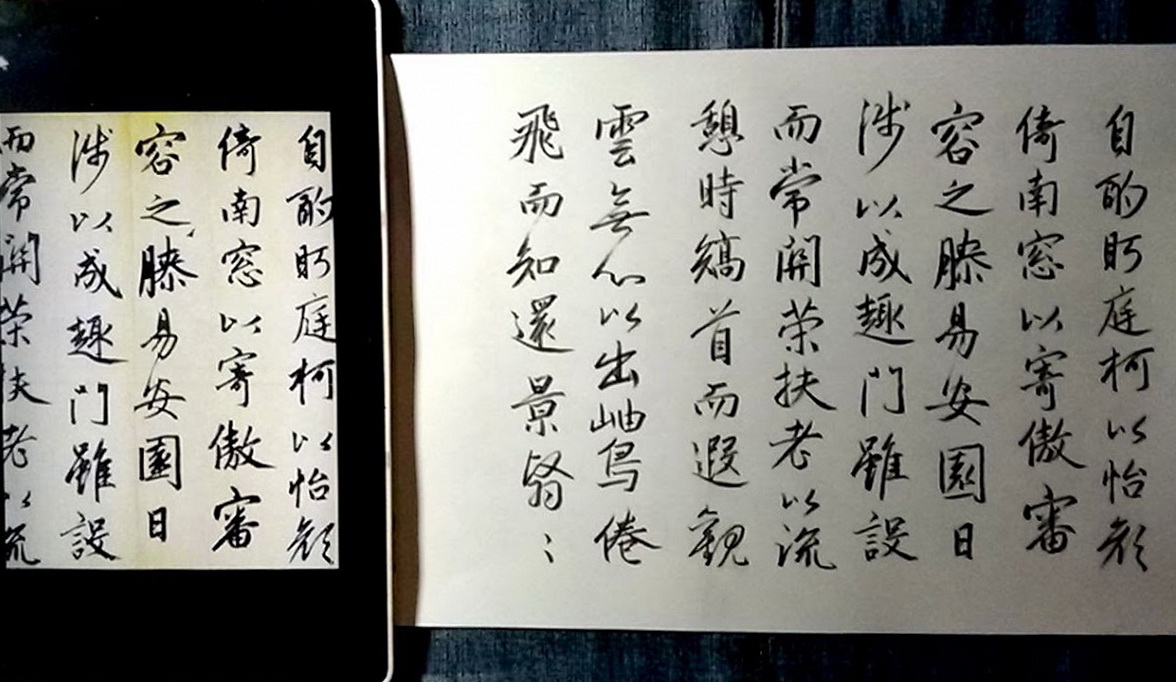 自酌眄庭柯以怡顏
倚南窓以寄傲審
容之膝易安園日
涉以成趣門雖設
而常關策扶老以流
憩時矯首而遐觀
雲無心以出岫鳥倦
飛而知還景翳〻
自酌眄庭柯以怡顏
倚南窓以寄傲審
容之膝易安園日
涉以成趣門雖設
而常關策扶老以流